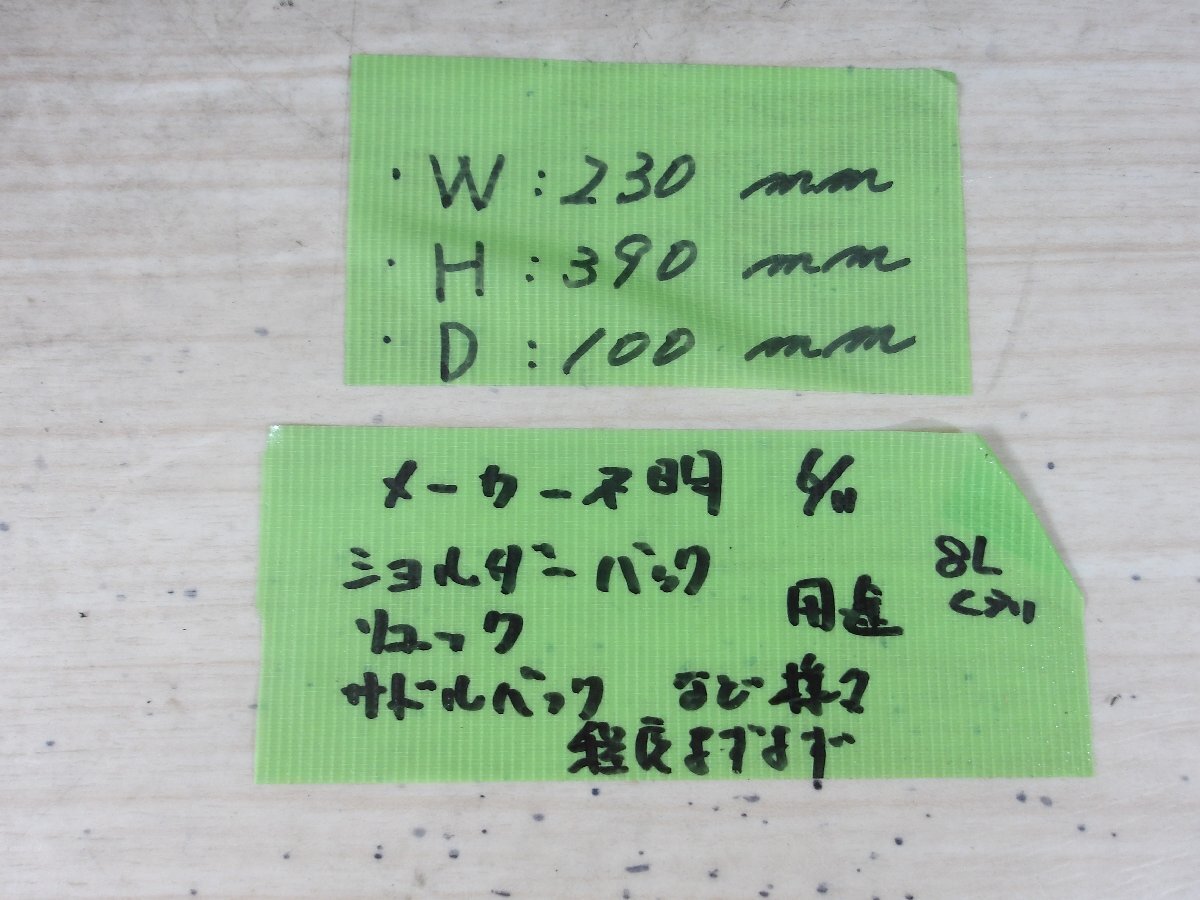 ・W:230 mm
・H:390 mm
・D:100 mm
メーカー不明 6/11
ショルダーバック
リュック 用途 8L
サドルバック など様々
程度まずまず